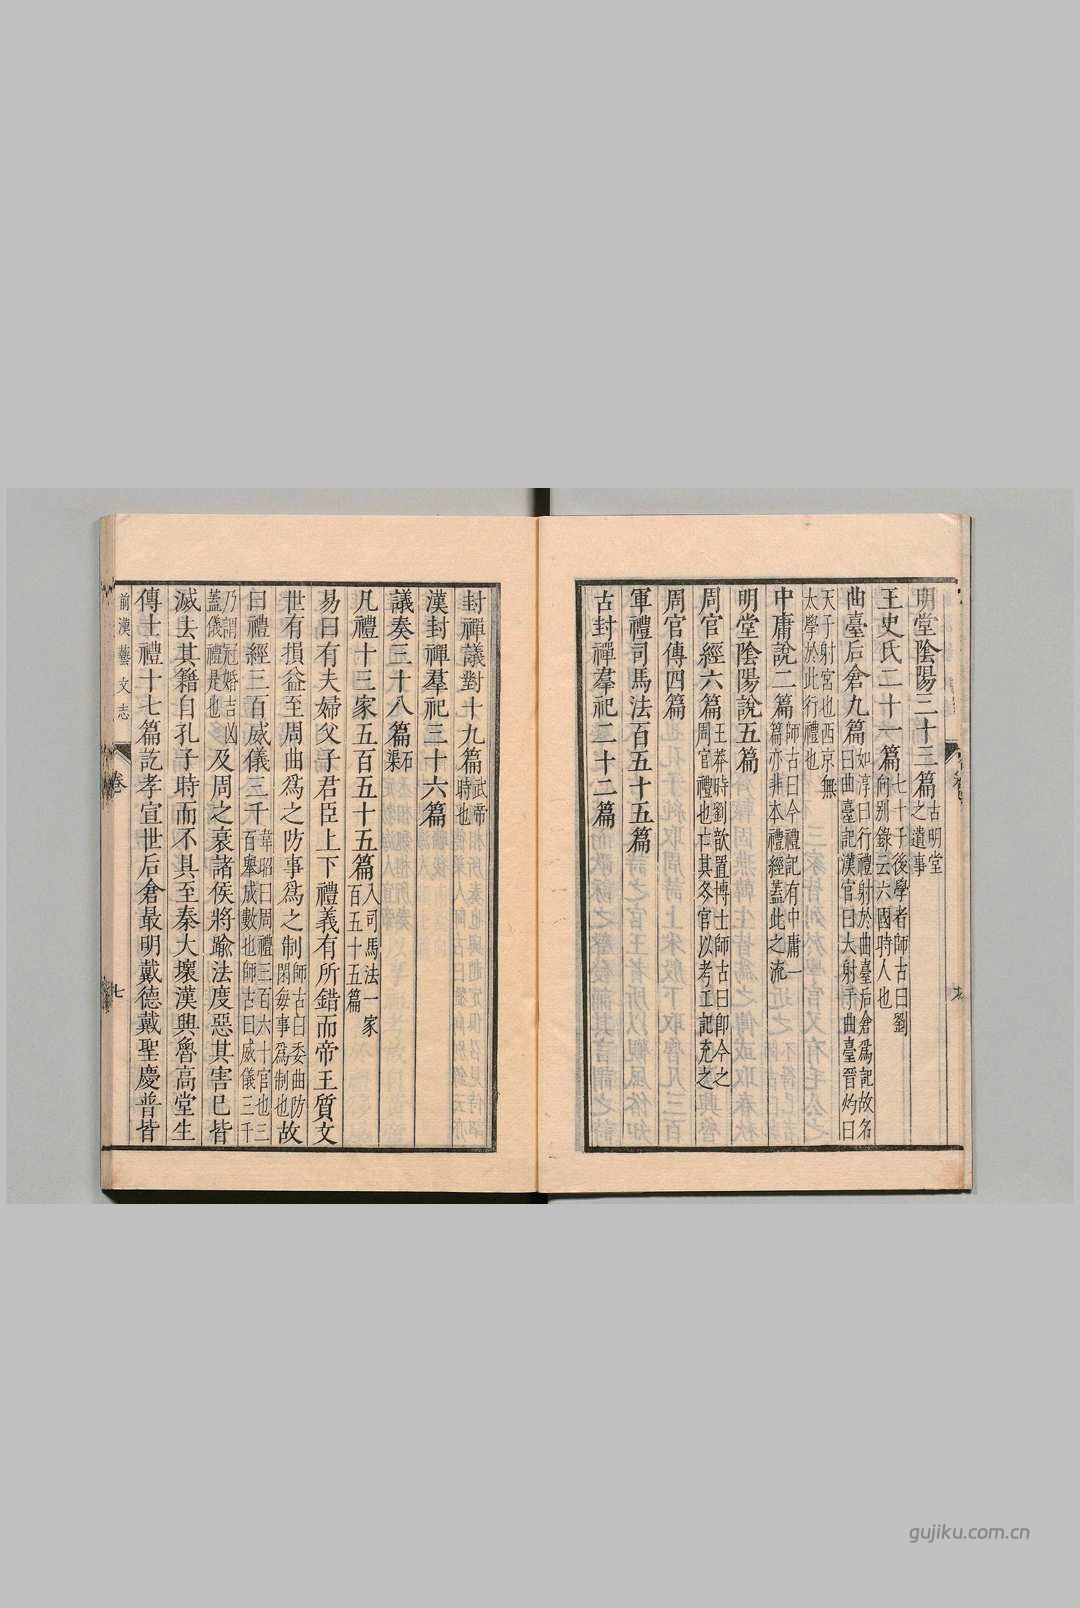 明堂陰陽三十三篇古明堂之遺事
王史氏二十一篇七十子後學者師古曰劉向别錄云六國時人也
曲臺后倉九篇如淳曰行禮射於曲臺后倉爲記故名曰曲臺記漢官曰大射于曲臺晉灼曰
天子射宮也西京無太學於此行禮也
中庸說二篇師古曰今禮記有中庸一篇亦非本禮經蓋此之流
明堂陰陽說五篇
周官經六篇王莽時劉歆置博士師古曰卽今之周官禮也亡其冬官以考工記充之
周官傳四篇
軍禮司馬法百五十五篇
古封禪羣祀二十二篇
封禪議對十九篇武帝時也
漢封禪羣祀三十六篇
議奏三十八篇石渠
凡禮十三家五百五十五篇入司馬法一家百五十五篇
易曰有夫婦父子君臣上下禮義有所錯而帝王質文
世有損益至周曲爲之防事爲之制師古曰委曲防閑每事爲制也故
曰禮經三百威儀三千韋昭曰周禮三百六十官也三百舉成數也師古曰威儀三千
乃謂冠婚吉凶蓋儀禮是也及周之衰諸侯將踰法度惡其害已皆
滅去其籍自孔子時而不具至秦大壞漢興魯高堂生
傳士禮十七篇訖孝宣世后倉最明戴德戴聖慶普皆
前漢藝文志
卷
七
gujiku.com.cn